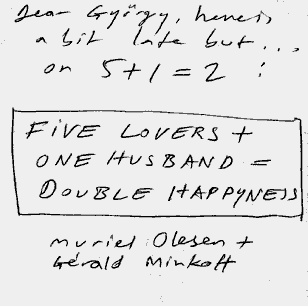 Dear György, here is
a bit late but...,
on 5+1=2 :
FIVE LOVERS +
ONE HUSBAND =
DOUBLE HAPPYNESS
Muriel Olesen +
Gérald Minkoff